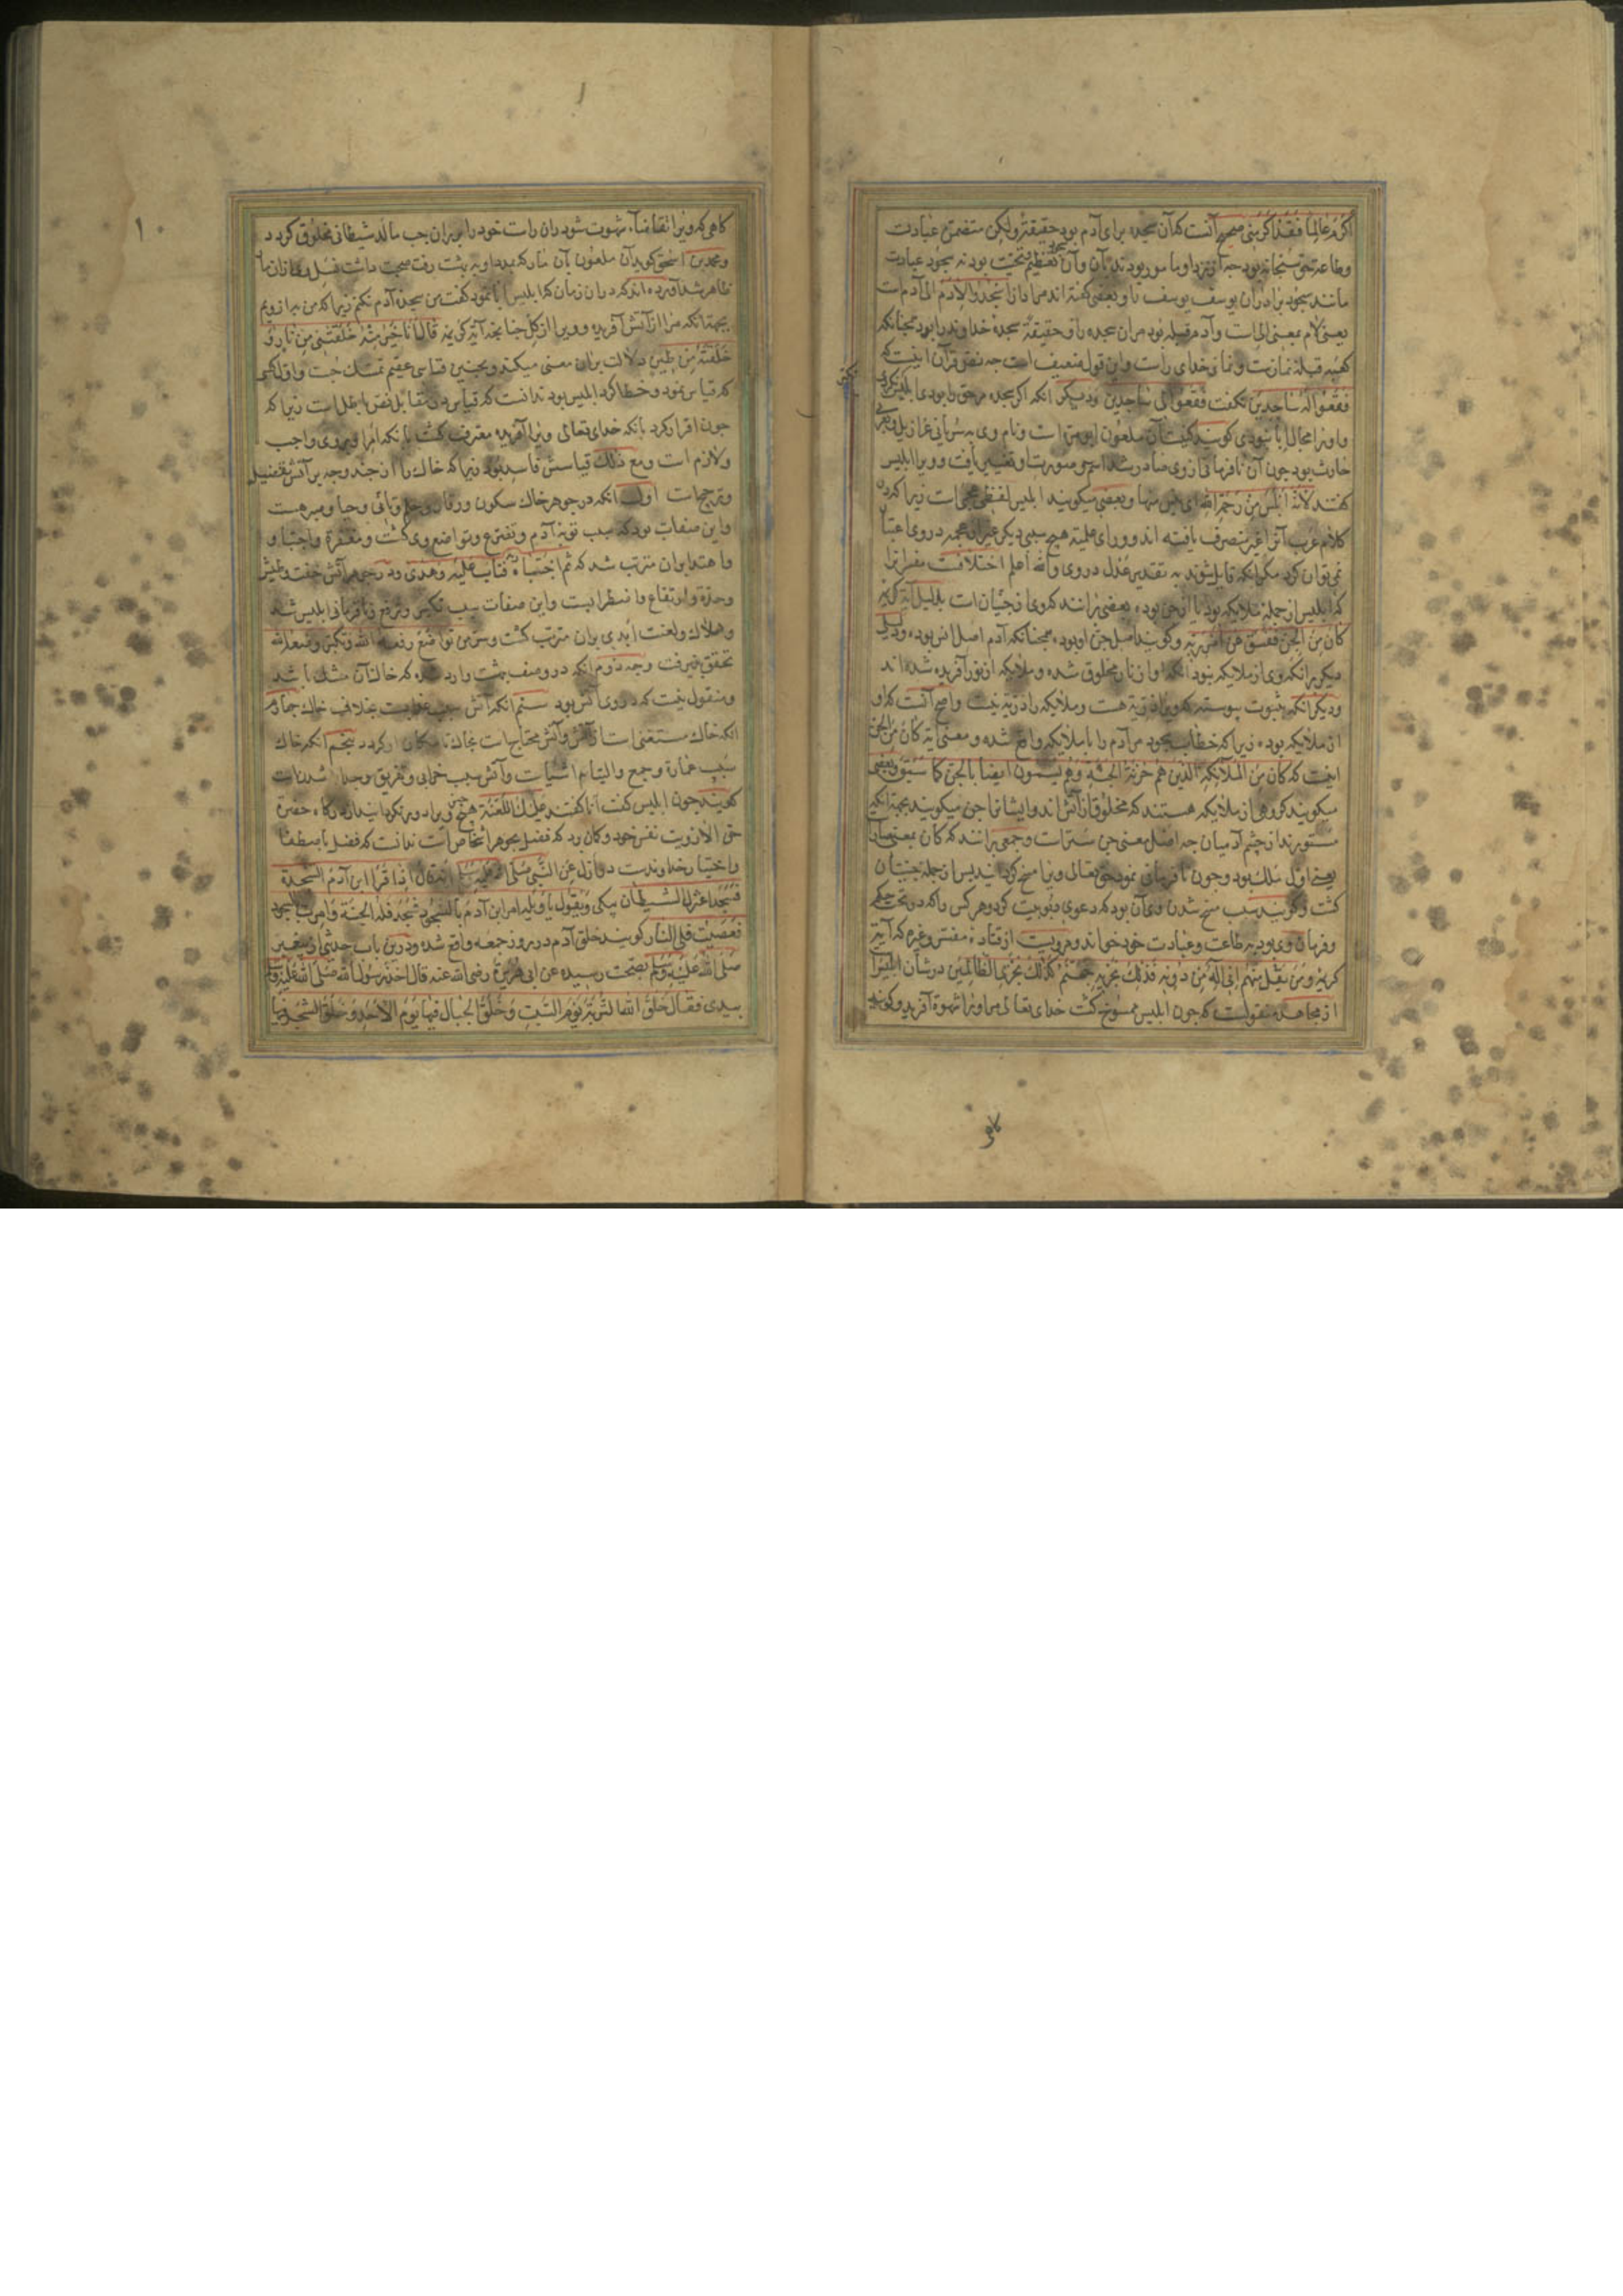 اکرم عالما فقد اکرمنی صحیح آنست که آن سجده برای آدم بود حقیقة ولیکن متضمن عبادت
وطاعة حق سبحانه بود چه از نزد او مامور بودند بآن وآن سجود تعظیم وتحیت بود نه سجود عبادت
مانند سجود برادران یوسف یوسف را وبعضی گفته اند مراد از اسجدوا لادم الی آدم است
یعنی لام بمعنی الی است وآدم قبله بود مران سجده را وحقیقة سجده خداوند را بود همچنانکه
کعبه قبله نمازست ونماز خدای راست واین قول ضعیف است چه نص قرآن اینست که
فقعوا له ساجدین نکفت فقعوا الی ساجدین ودیگر انکه اکر سجده مر حق را بودی ابلیس نکردی
واورا مجال ابا نبودی کویند کنیت آن ملعون ابو مره است ونام وی به سریانی عزازیل وبعربی
حارث بود چون آن نافرمانی از وی صادر شد اسم وصورت او تغییر یافت وویرا ابلیس
کفتند لانه ابلس من رحمة الله ای یئس منها وبعضی میکویند ابلیس لفظی عجمی است زیرا که در
کلام عرب آنرا غیر منصرف یافته اند وورای علمیة هیچ سببی دیگر غیر از عجمه در وی اعتبار
نمی توان کرد مکر انکه قایل شوند به تقدیر عدل در وی والله اعلم اختلافست مفسرانرا
که ابلیس از جمله ملایکه بود یا از جن بود بعضی برانند که وی از جنیان است بدلیل آیة کریمه
کان من الجن ففسق عن امر ربه وکویند اصل جن او بود همچنانکه آدم اصل انس بود ودلیل
دیگر برانکه وی از ملایکه نبود انکه او از نار مخلوق شده وملایکه از نور آفریده شده اند
ودیگر انکه بثبوت پیوسته که ویرا ذریة هست وملایکه را ذریة نیست واصح آنست که او
از ملایکه بود زیرا که خطاب سجود مر آدم را با ملایکه واقع شده ومعنی آیة کان من الجن
اینست که کان من الملائکة الذین هم خزنة الجنة وهم یسمون ایضا بالجن کما سبق وبعضی
میکویند کروهی از ملایکه هستند که مخلوق از آتش اند وایشانرا جن میکویند بجهة انکه
مستورند از چشم آدمیان چه اصل معنی جن ستر است وجمعی برانند که کان بمعنی صار
یعنی اول ملک بود وچون نافرمانی نمود حق تعالی ویرا مسخ کردانید پس از جمله جنیان
کشت وکویند سبب مسخ شدن وی آن بود که دعوی ربوبیت کرد وهر کس را که در تحت حکم
وفرمان وی بود به طاعت وعبادت خود خواند ومرویست از قتاده مفسر وغیره که آیة
کریمه ومن یقل منهم انی اله من دونه فذلک نجزیه جهنم کذلک نجزی الظالمین در شأن ابلیس
از مجاهد منقولست که چون ابلیس ممسوخ کشت خدای تعالی مر اورا شهوة آفرید وکویند
کاهی که ویرا تقاضاء شهوت شود ران راست خود را بران چپ مالد شیطانی مخلوق کردد
ومحمد بن اسحق کوید آن ملعون بآن مار که ویرا به بهشت رفت صحبت داشت
ظاهر شد آورده اند که دران زمان که ابلیس ابا نمود کفت من سجده آدم نکنم زیرا که من به از ویم
بجهة انکه مرا از آتش آفریده وویرا از کل چنانچه آیة کریمه قال انا خیر منه خلقتنی من نار و
خلقته من طین دلالت بران معنی میکند وبچنین قیاسی عقیم تمسک جست واول کسی
که قیاس نمود وخطا کرد ابلیس بود ندانست که قیاس در مقابل نص باطل است زیرا که
چون اقرار کرد بانکه خدای تعالی ویرا آفریده معترف کشت بانکه امر او بر وی واجب
ولازم است ومع ذلک قیاسش فاسد بود زیرا که خاک را از چند وجه بر آتش تفضیل
وترجیحات اول انکه در جوهر خاک سکون ووقار وحلم وتانی وحیا وصبر هست
واین صفات بود که سبب توبه آدم وتضرع وتواضع وی کشت ومغفرة واجتبا و
واهتدا بران مترتب شد که ثم اجتباه ربه فتاب علیه وهدی ودر جوهر آتش خفت وطیش
وحدة وارتفاع واضطرابست واین صفات سبب تکبر وترفع ونافرمانی ابلیس شد
وهلاک ولعنت ابدی بران مترتب کشت وسر من تواضع رفعه الله ومن تکبر وضعه الله
تحقق پذیرفت وجه دوم انکه در وصف بهشت وارد شده که خاک آن مشک باشد
ومنقول نیست که در وی آتش بود سیم انکه آتش سبب عذابست بخلاف خاک چهارم
انکه خاک مستغنی است از آتش وآتش محتاج است بخاک تا مکان او کردد پنجم انکه خاک
سبب عمارة وجمع والتیام اشیاست وآتش سبب خرابی وتفریق وجدا شدنست
کویند چون ابلیس کفت انا کفتند علیک اللعنة هیچ کس را دور نکردانید از درکاه حضرة
حق الا رویت نفس خود وکمان برد که فضل بجوهر اشخاص است ندانست که فضل باصطفا
واختیار خداوندست دوازل عن النبی صلی الله علیه وسلم انه قال اذا قرأ ابن آدم السجدة
فسجد اعتزل الشیطان یبکی ویقول یا ویله امر ابن آدم بالسجود فسجد فله الجنة وامرت بالسجود
فعصیت فلی النار کویند خلق آدم در روز جمعه واقع شد ودرین باب حدیثی از پیغمبر
صلی الله علیه وسلم بصحت رسیده عن ابی هریرة رضی الله عنه قال اخذ رسول الله صلی الله علیه وسلم
بیدی فقال خلق الله التربة یوم السبت وخلق الجبال فیها یوم الاحد وخلق الشجر فیها
۱۰